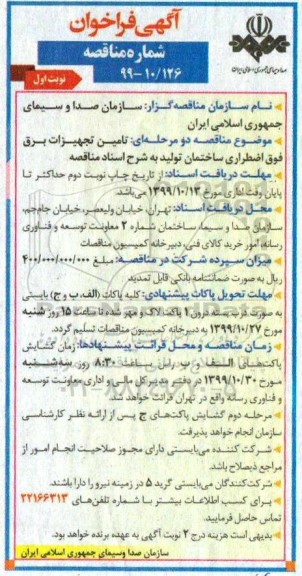 آگهی فراخوان
شماره مناقصه
۹۹-۱۰/۱۲۶
نوبت اول
صدا و سیمای جمهوری اسلامی ایران
نام سازمان مناقصه‌گزار: سازمان صدا و سیمای
جمهوری اسلامی ایران
موضوع مناقصه دو مرحله‌ای: تامین تجهیزات برق
فوق اضطراری ساختمان تولید به شرح اسناد مناقصه
مهلت دریافت اسناد: از تاریخ چاپ نوبت دوم حداکثر تا
پایان وقت اداری مورخ ۱۳۹۹/۱۰/۱۳ می‌باشد.
محل دریافت اسناد: تهران، خیابان ولیعصر، خیابان جام‌جم،
سازمان صدا و سیما، ساختمان شماره ۲ معاونت توسعه و فناوری
رسانه، امور خرید کالای فنی، دبیرخانه کمیسیون مناقصات
میزان سپرده شرکت در مناقصه: مبلغ ۴۰۰/۰۰۰/۰۰۰
ریال به صورت ضمانتنامه بانکی قابل تمدید
مهلت تحویل پاکات پیشنهادی: کلیه پاکات (الف، ب و ج) بایستی
به صورت دربسته درون ۱ پاکت لاک و مهر شده تا ساعت ۱۵ روز شنبه
مورخ ۱۳۹۹/۱۰/۲۷ به دبیرخانه کمیسیون مناقصات تسلیم گردد.
زمان مناقصه و محل قرائت پیشنهادها: زمان گشایش
پاکت‌های الف و ب راس ساعت ۸:۳۰ روز سه‌شنبه
مورخ ۱۳۹۹/۱۰/۳۰ در دفتر مدیرکل مالی و اداری معاونت توسعه
و فناوری رسانه واقع در تهران قرائت خواهد شد.
مرحله دوم گشایش پاکت‌های ج پس از ارائه نظر کارشناسی
سازمان انجام خواهد پذیرفت.
شرکت کننده می‌بایستی دارای مجوز صلاحیت انجام امور از
مراجع ذیصلاح باشد.
شرکت‌کنندگان می‌بایستی گرید ۵ در زمینه نیرو را دارا باشند.
برای کسب اطلاعات بیشتر با شماره تلفن‌های ۲۲۱۶۶۳۱۳
تماس حاصل فرمایید.
بدیهی است هزینه درج ۲ نوبت آگهی به عهده برنده خواهد بود.
سازمان صدا وسیمای جمهوری اسلامی ایران